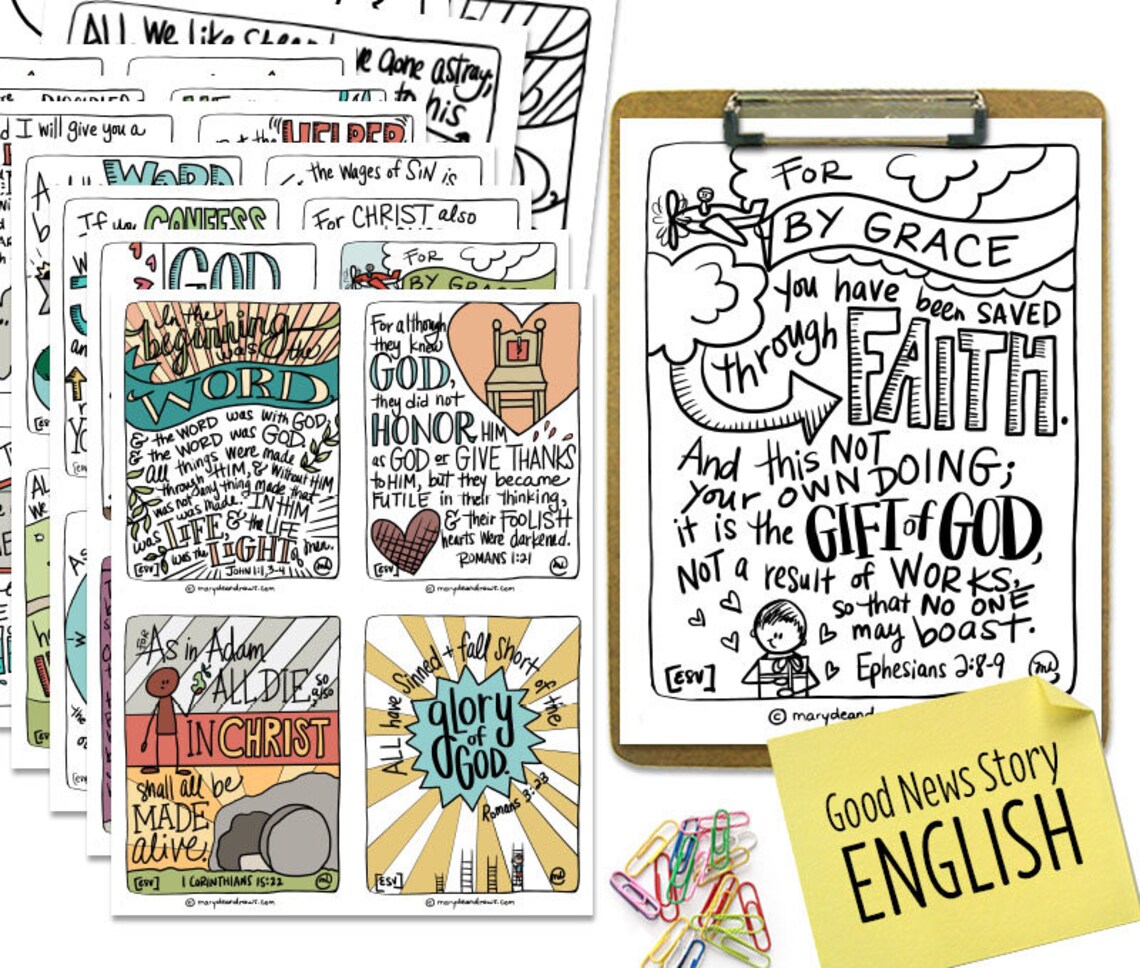 ALL We Like Sheep
ve gone astray;
to his
DISCIPLES
I will give you a
the "HELPER
WORD
the Wages of SiN is
If you CONFESS
For CHRIST also
GOD
FOR
BY GRACE
In the
beginning
was the
WORD,
& the WORD was with GOD,
& the WORD was GOD.
All things were made
through HIM, & without HIM
was not any thing made that
was made. IN HIM
was LIFE, & the LIFE
was the LIGHT of men.
[ESV] JOHN 1:1, 3-4
© marydeandraws.com
For although
they knew
GOD,
they did not
HONOR HIM
as GOD or GIVE THANKS
to HIM, but they became
FUTILE in their thinking,
& their FOOLISH
hearts were darkened.
ROMANS 1:21
[ESV]
© marydeandraws.com
FOR
As in Adam
ALL DIE,
so
also
IN CHRIST
shall all be
MADE
alive.
[ESV] 1 CORINTHIANS 15:22
© marydeandraws.com
ALL have sinned + fall short of the
glory
of
GOD.
Romans 3:23
[ESV]
© marydeandraws.com
FOR
BY GRACE
you have been SAVED
through FAITH.
And this NOT
your OWN DOING;
it is the GIFT of GOD,
NOT a result of WORKS,
so that NO ONE
may boast.
Ephesians 2:8-9
[ESV]
© marydeand
Good News Story
ENGLISH